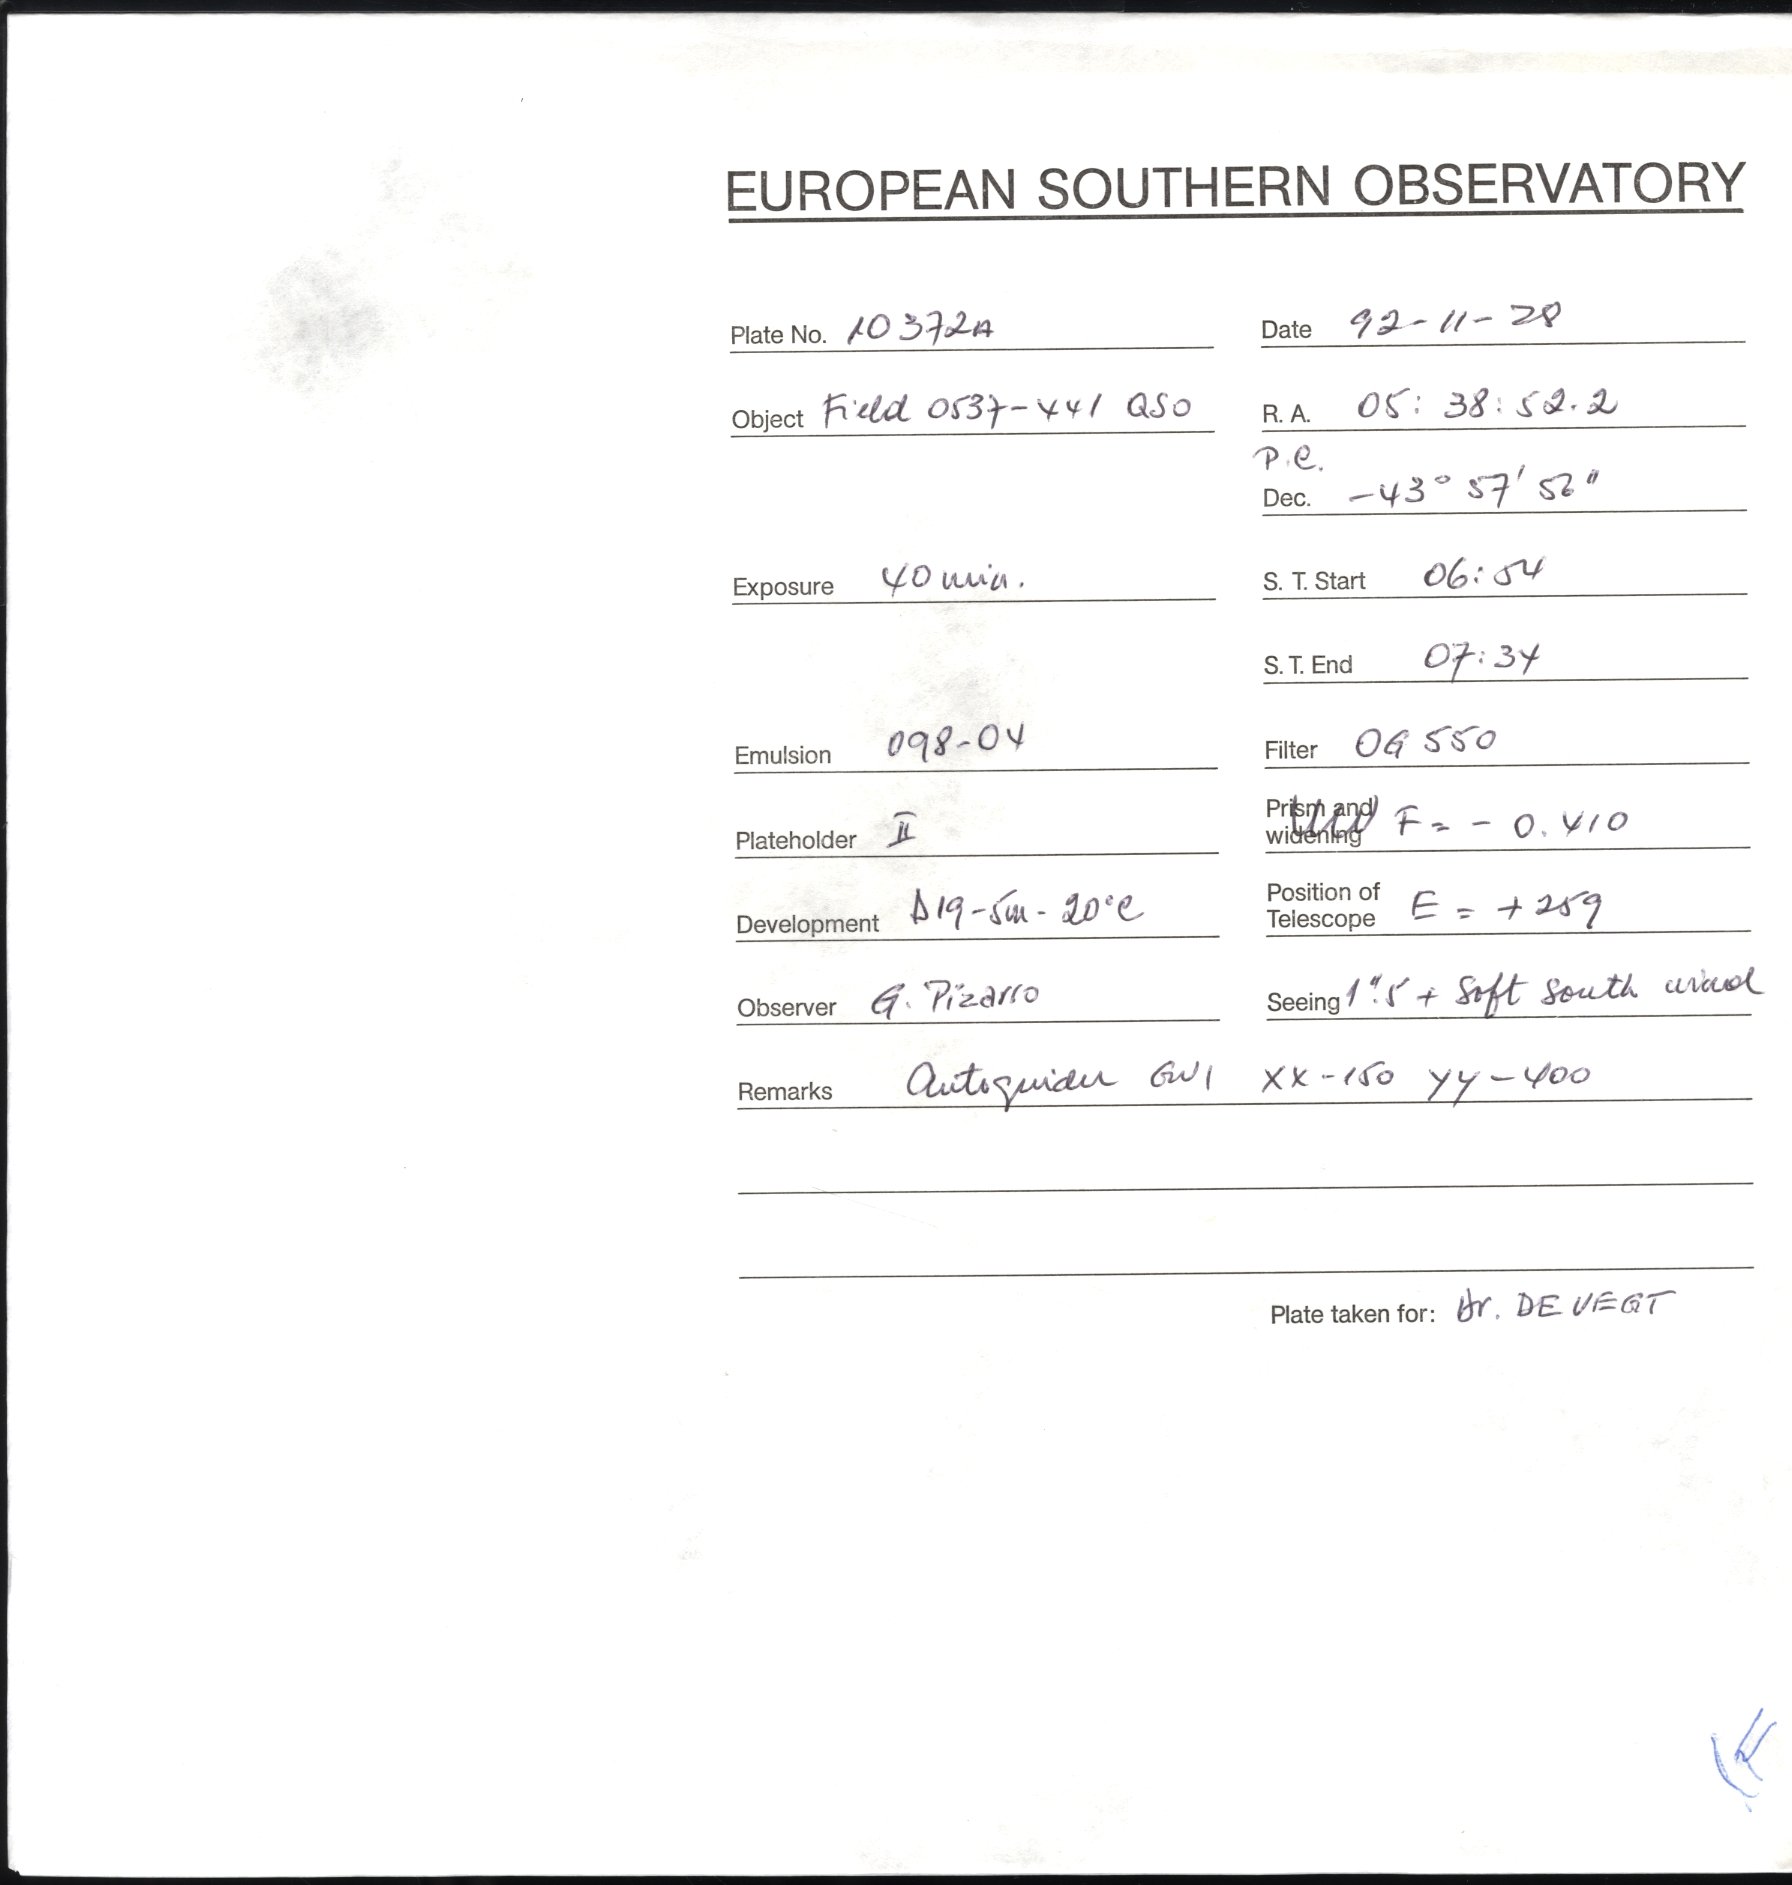 EUROPEAN SOUTHERN OBSERVATORY
Plate No. 10372A Date 92-11-28
Object Field 0537-441 QSO R. A. 05: 38: 52.2
P.C.
Dec. -43° 57' 56"
Exposure 40 min. S. T. Start 06:54
S. T. End 07:34
Emulsion 098-04 Filter OG 550
Plateholder II Prism and widening F = - 0.410
Development D19-5m-20°C Position of Telescope E = +259
Observer G. Pizarro Seeing 1".5 + Soft South wind
Remarks Autoguider GW1 XX-150 YY-400
Plate taken for: Dr. DE VEGT